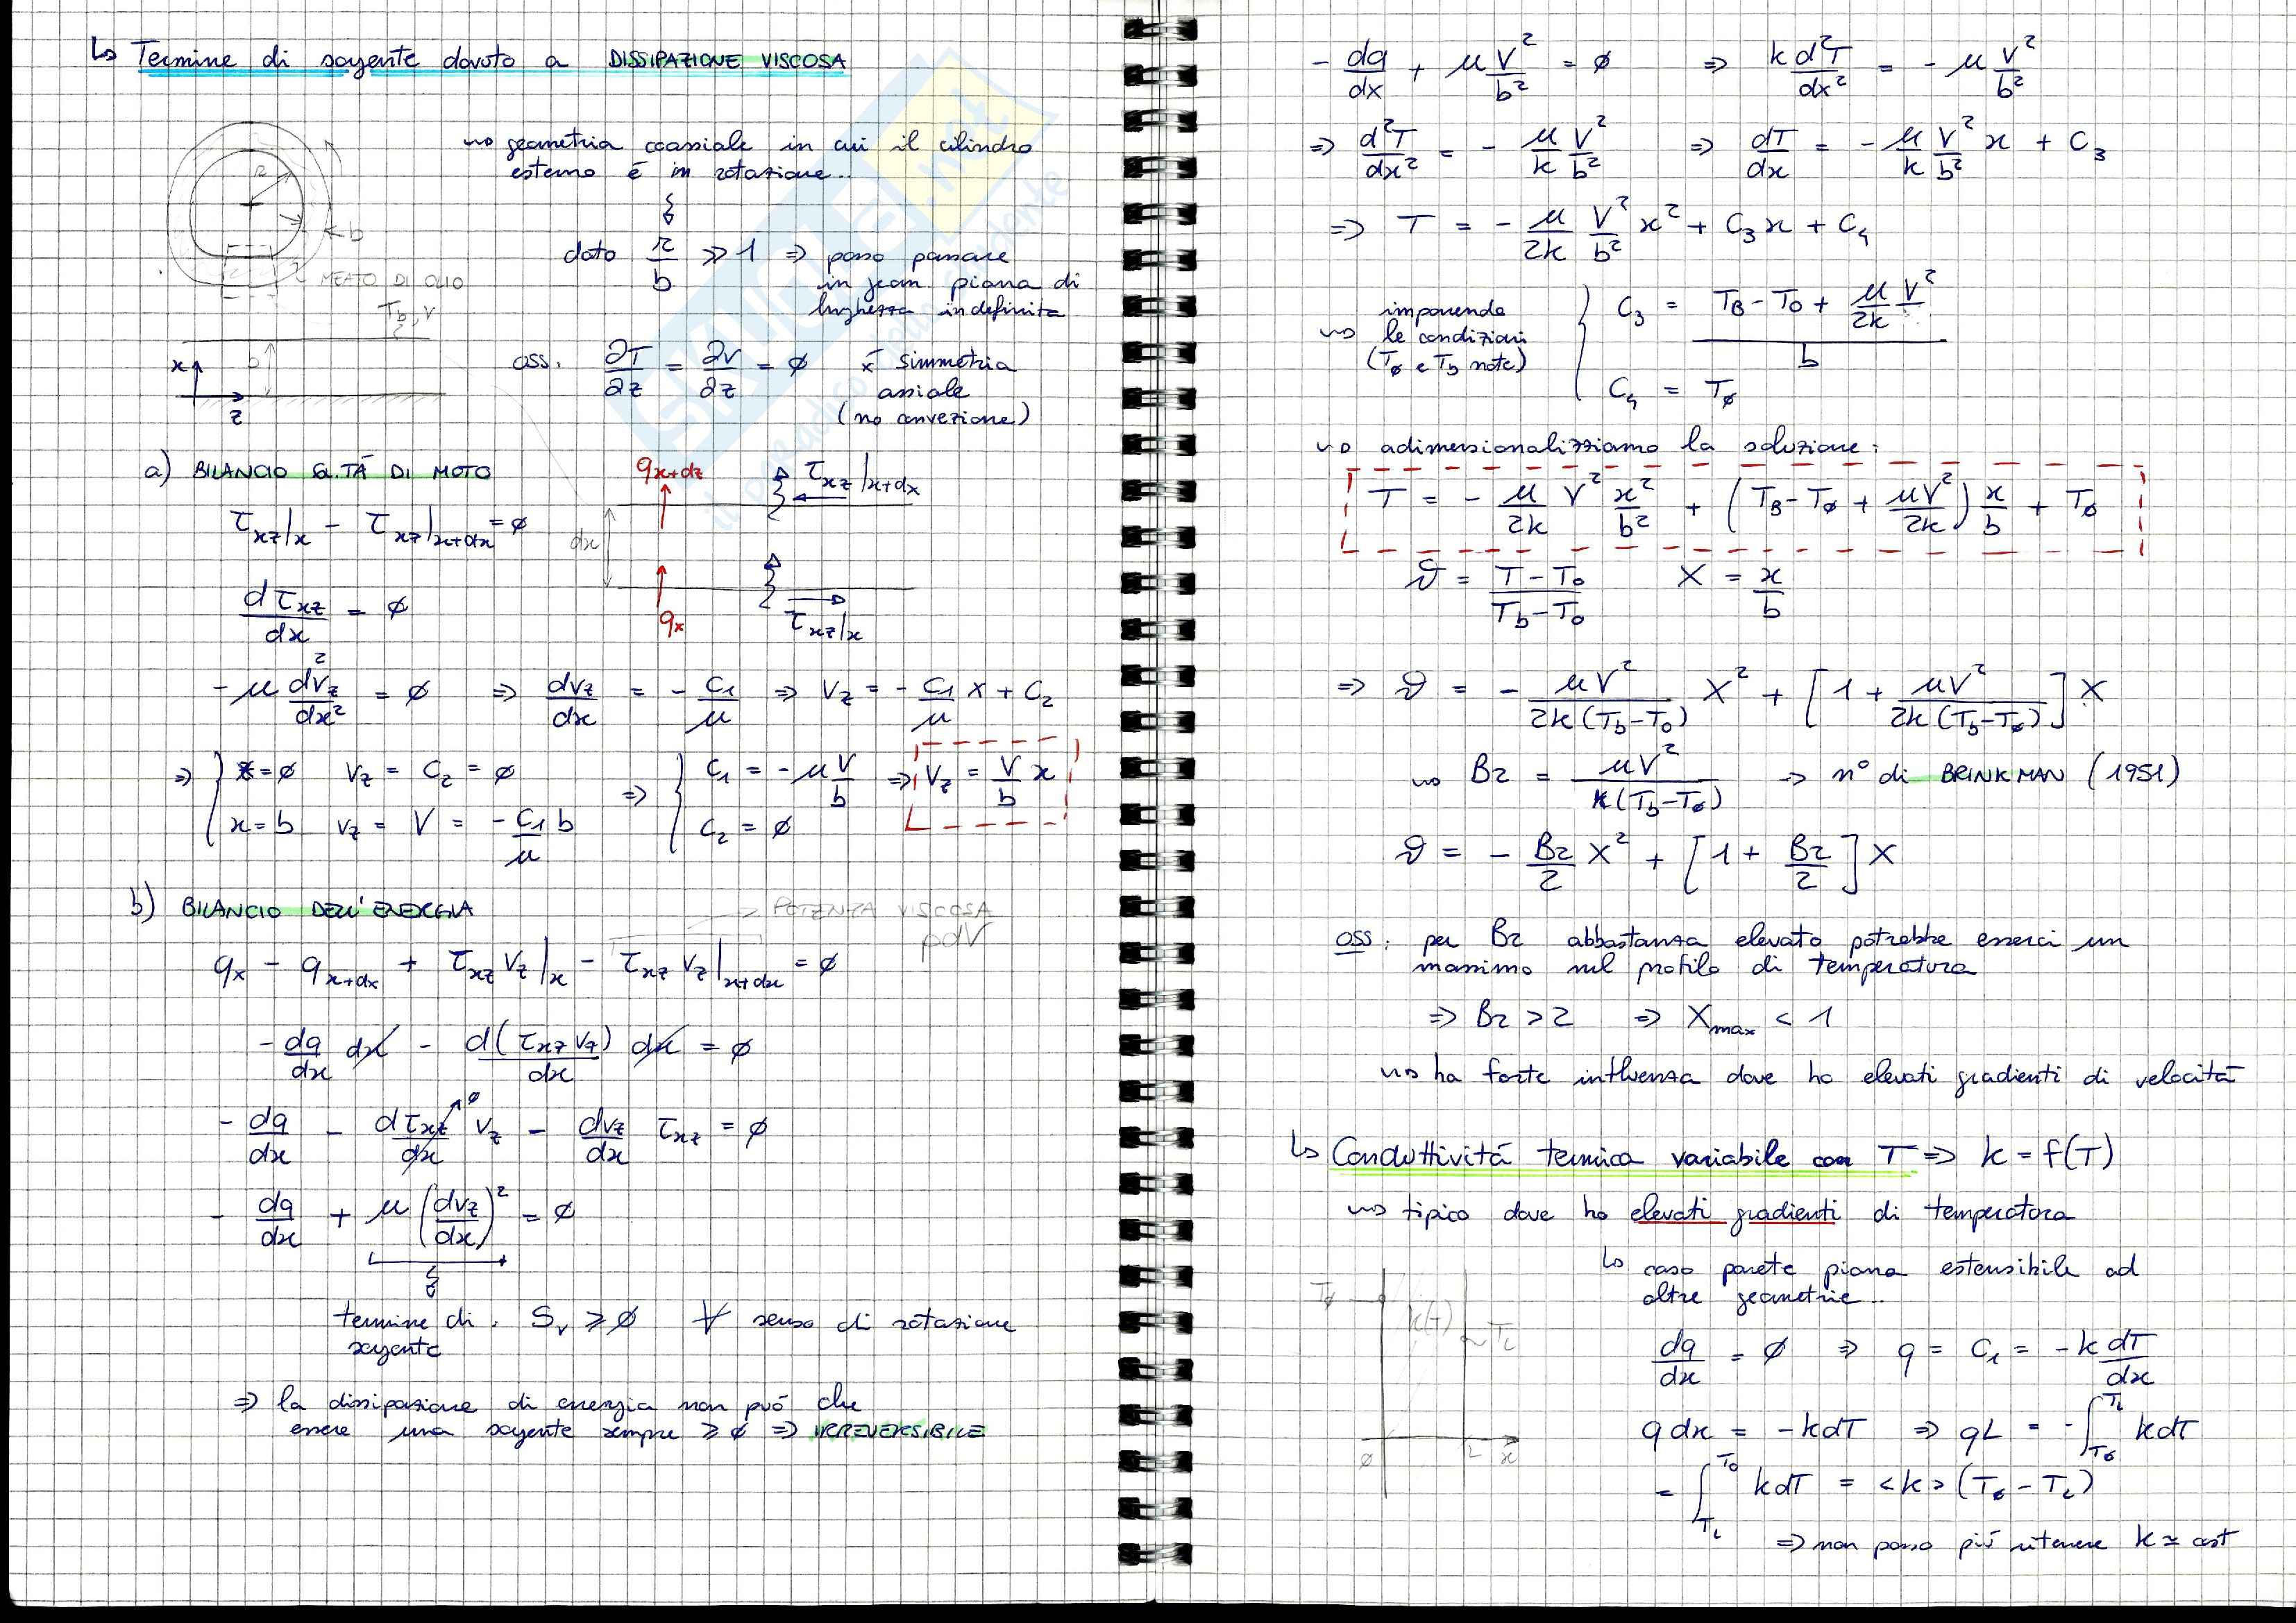 ↳ Termine di sorgente dovuto a DISSIPAZIONE VISCOSA
⇝ geometria coassiale in cui il cilindro
esterno é in rotazione..
R
b
MEATO DI OLIO
dato r/b ≫ 1 ⇒ posso passare
in geom. piana di
lunghezza indefinita
T_b, V
b
x
z
oss. ∂T/∂z = ∂v/∂z = ∅ x́ simmetria
assiale
(no convezione)
a) BILANCIO Q.TÁ DI MOTO
τ_xz|x − τ_xz|x+dx = ∅
dτ_xz/dx = ∅
q_x+dz
τ_xz|x+dx
dx
q_x
τ_xz|x
−μ d²v_z/dx² = ∅ ⇒ dv_z/dx = − C₁/μ ⇒ v_z = − C₁/μ x + C₂
⇒ { x=∅ v_z = C₂ = ∅
x=b v_z = V = −C₁/μ b
⇒ { C₁ = −μ V/b
C₂ = ∅
⇒ v_z = V/b x
b) BILANCIO DELL'ENERGIA
→ POTENZA VISCOSA
pdV
q_x − q_x+dx + τ_xz v_z|x − τ_xz v_z|x+dx = ∅
−dq/dx dx − d(τ_xz v_z)/dx dx = ∅
−dq/dx − dτ_xz/dx v_z − dv_z/dx τ_xz = ∅
− dq/dx + μ (dv_z/dx)² = ∅
termine di. S_v ⩾ ∅ ∀ senso di rotazione
sorgente
⇒ la dissipazione di energia non puó che
essere una sorgente sempre ⩾ ∅ ⇒ IRREVERSIBILE
− dq/dx + μ V²/b² = ∅ ⇒ k d²T/dx² = − μ V²/b²
⇒ d²T/dx² = − μ/k V²/b² ⇒ dT/dx = − μ/k V²/b² x + C₃
⇒ T = − μ/2k V²/b² x² + C₃x + C₄
⇝ imponendo
le condizioni
(T∅ e Tb note)
{ C₃ = (TB − T0 + μ/2k V²)/b
C₄ = T∅
⇝ adimensionalizziamo la soluzione:
T = − μ/2k V² x²/b² + (TB − T∅ + μV²/2k) x/b + T∅
ϑ = (T−T0)/(Tb−T0) X = x/b
⇒ ϑ = − μV²/2k(Tb−T0) X² + [1 + μV²/2k(Tb−T∅)] X
⇝ Br = μV²/k(Tb−T∅) → n° di BRINKMAN (1951)
ϑ = − Br/2 X² + [1 + Br/2] X
oss: per Br abbastanza elevato potrebbe esserci un
massimo nel profilo di temperatura
⇒ Br > 2 ⇒ X_max < 1
⇝ ha forte influenza dove ho elevati gradienti di velocitá
↳ Conduttivitá termica variabile con T ⇒ k = f(T)
⇝ tipico dove ho elevati gradienti di temperatura
↳ caso parete piana estensibile ad
altre geometrie..
T∅
k(T)
T_L
∅
L
x
dq/dx = ∅ ⇒ q = C₁ = −k dT/dx
q dx = −k dT ⇒ qL = −∫_T∅^T_L k dT
= ∫_T_L^T0 k dT = <k> (T∅ − T_L)
⇒ non posso piú ritenere k ≃ cost